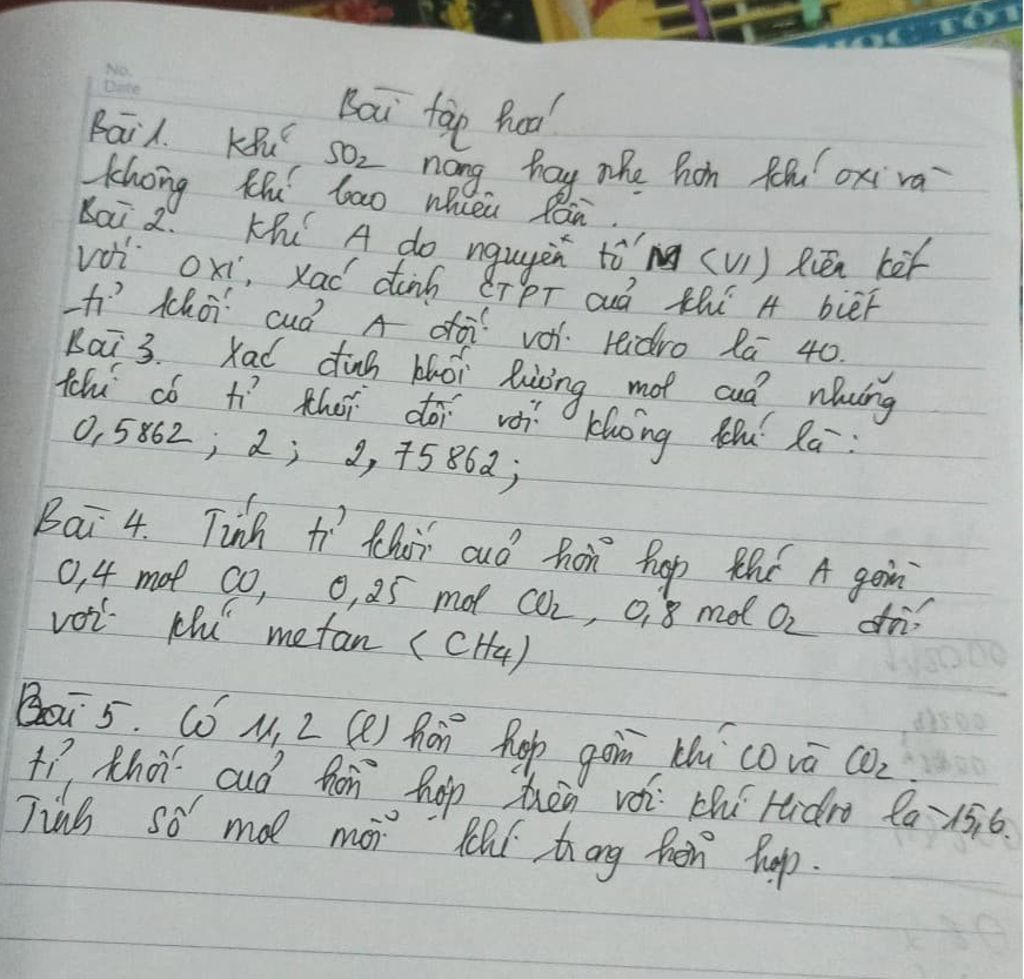 HỌC TỐT
No.
Date
Bài tập hoá
Bài 1. Khí SO2 nặng hay nhẹ hơn khí oxi và
không khí bao nhiêu lần.
Bài 2. Khí A do nguyên tố M (VI) liên kết
với oxi, xác định CTPT của khí A biết
tỉ khối của A đối với Hidro là 40.
Bài 3. Xác định khối lượng mol của những
khí có tỉ khối đối với không khí là:
0,5862; 2; 2,75862;
Bài 4. Tính tỉ khối của hỗn hợp khí A gồm
0,4 mol CO, 0,25 mol CO2, 0,8 mol O2 đối
với khí metan (CH4)
Bài 5. Có 11,2 (l) hỗn hợp gồm khí CO và CO2.
tỉ khối của hỗn hợp trên với khí Hidro là 15,6.
Tính số mol mỗi khí trong hỗn hợp.